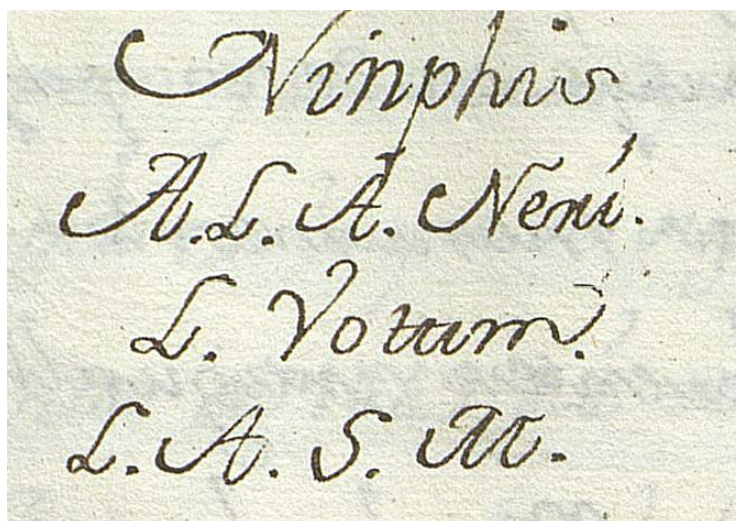 Ninphis
A. L. A. Neni.
L. Votum.
L. A. S. M.